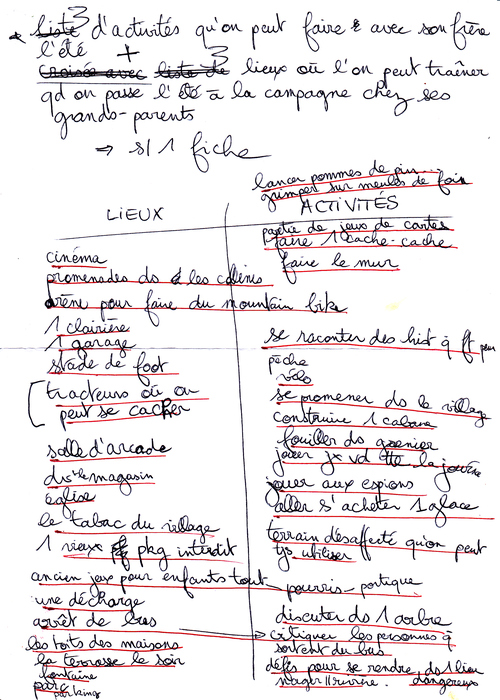 * Liste 3 d'activités qu'on peut faire avec son frère
l'été +
Croisée avec liste de 3 lieux où l'on peut traîner
qd on passe l'été à la campagne chez ses
grands-parents
⇒ s/ 1 fiche
lancer pommes de pin...
grimper sur meules de foin
LIEUX
ACTIVITÉS
partie de jeux de cartes
faire 1 cache-cache
cinéma
faire le mur
promenades ds les collines
arène pour faire du mountain bike
1 clairière
1 garage
se raconter des hist q ft peur
stade de foot
pêche
vélo
[tracteurs où on
peut se cacher
se promener ds le village
construire 1 cabane
fouiller ds grenier
salle d'arcade
jouer jx vd tte la journée
ds le magasin
jouer aux espions
église
aller s'acheter 1 glace
le tabac du village
terrain désaffecté qu'on peut
tjs utiliser
1 vieux pkg interdit
ancien jeux pour enfants tout pourris - portique
une décharge
discuter ds 1 arbre
arrêt de bus → critiquer les personnes q
sortent du bus
les toits des maisons
la terrasse le soir
défis pour se rendre ds 1 lieu
dangereux
fontaine
nager // rivière.
parc
parking